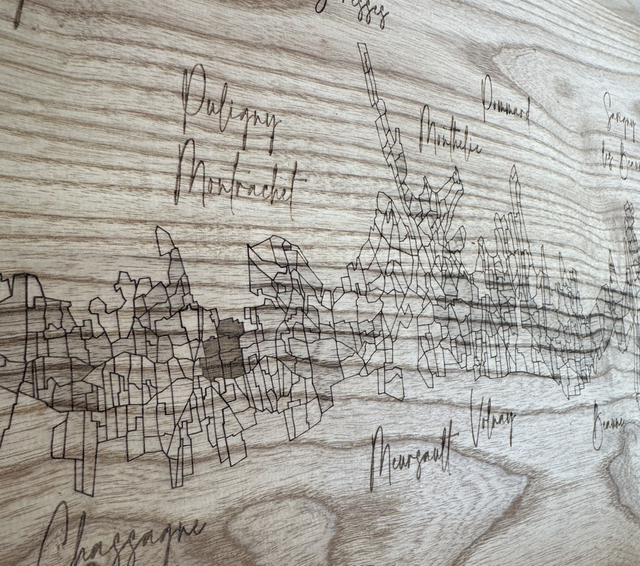 Puligny
Montrachet
Monthelie
Pommard
Savigny
lès Beau
Meursault
Volnay
Beaune
Chassagne